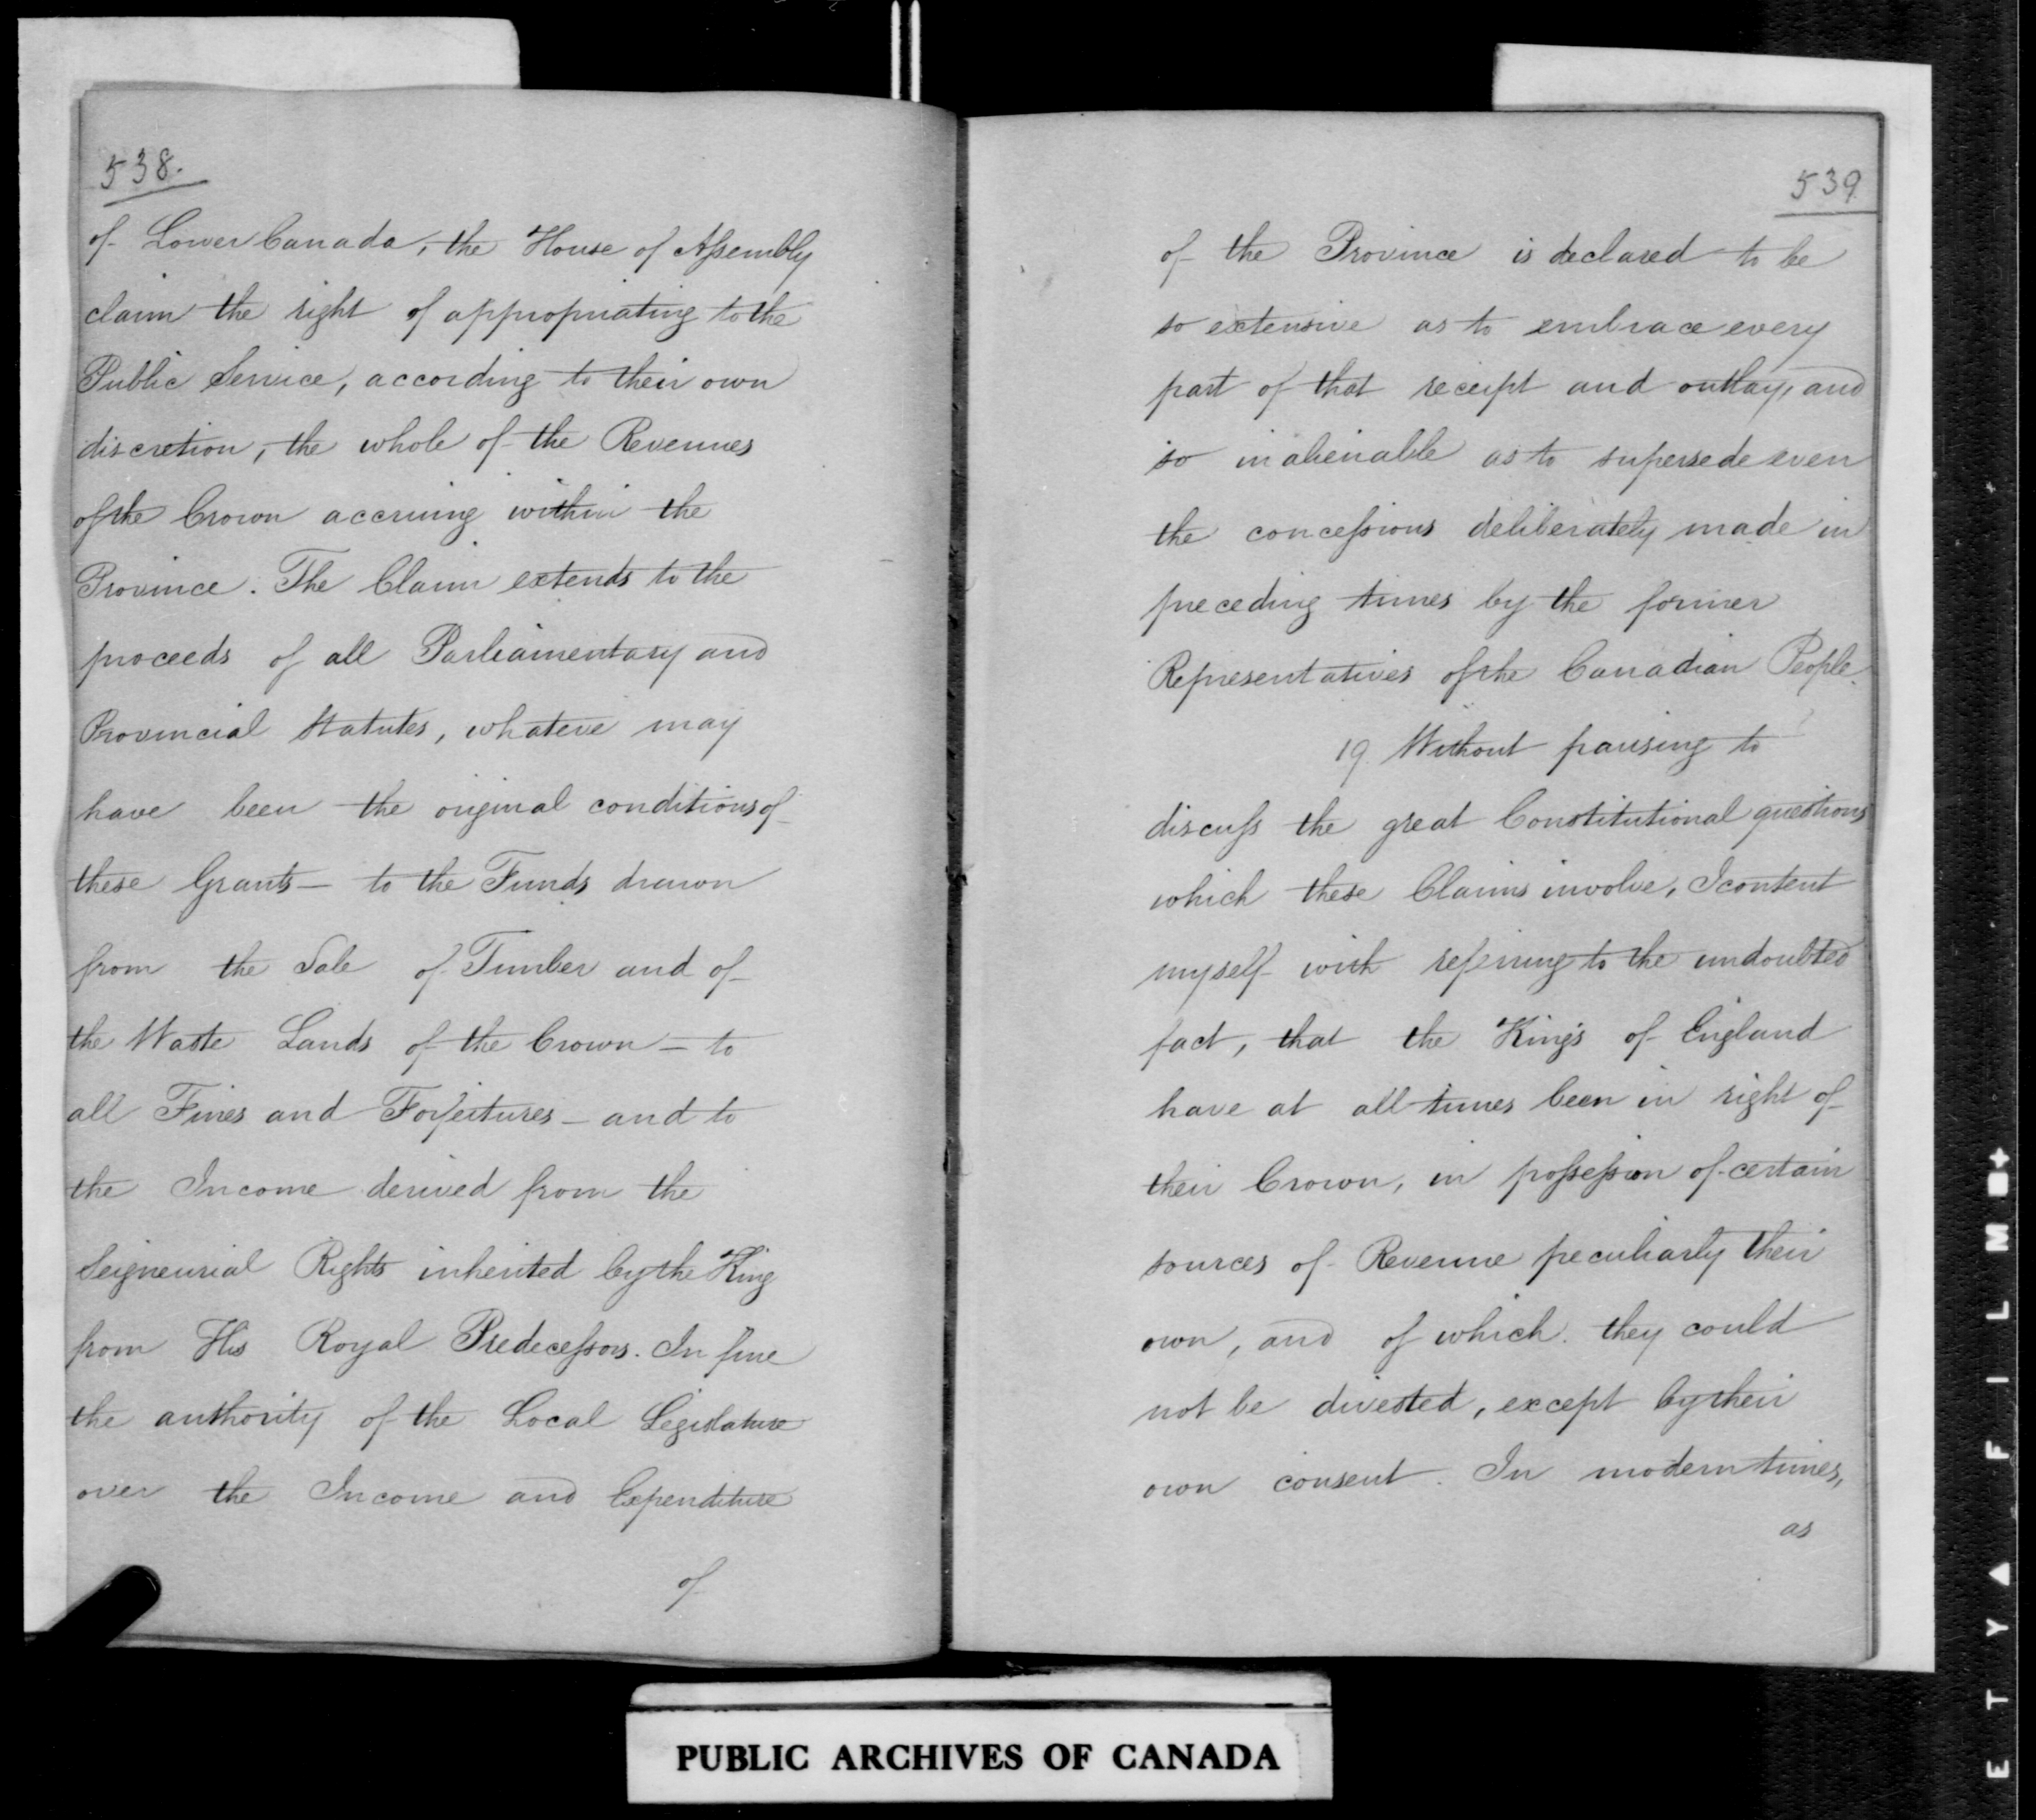 538.
of Lower Canada, the House of Assembly
claim the right of appropriating to the
Public Service, according to their own
discretion, the whole of the Revenues
of the Crown accruing within the
Province. The Claim extends to the
proceeds of all Parliamentary and
Provincial Statutes, whateve may
have been the original conditions of
these Grants — to the Funds drawn
from the Sale of Timber and of
the Waste Lands of the Crown — to
all Fines and Forfeitures — and to
the Income derived from the
Seigneurial Rights inherited by the King
from His Royal Predecessors. In fine
the authority of the Local Legislature
over the Income and Expenditure
of
539
of the Province is declared to be
so extensive as to embrace every
part of that receipt and outlay, and
so inalienable as to supersede even
the concessions deliberately made in
preceding times by the former
Representatives of the Canadian People.
19. Without pausing to
discuss the great Constitutional questions
which these Claims involve, I content
myself with refering to the undoubted
fact, that the Kings of England
have at all times been in right of
their Crown, in possession of certain
sources of Revenue peculiarly their
own, and of which they could
not be divested, except by their
own consent. In modern times,
as
PUBLIC ARCHIVES OF CANADA
ETY▲FILM